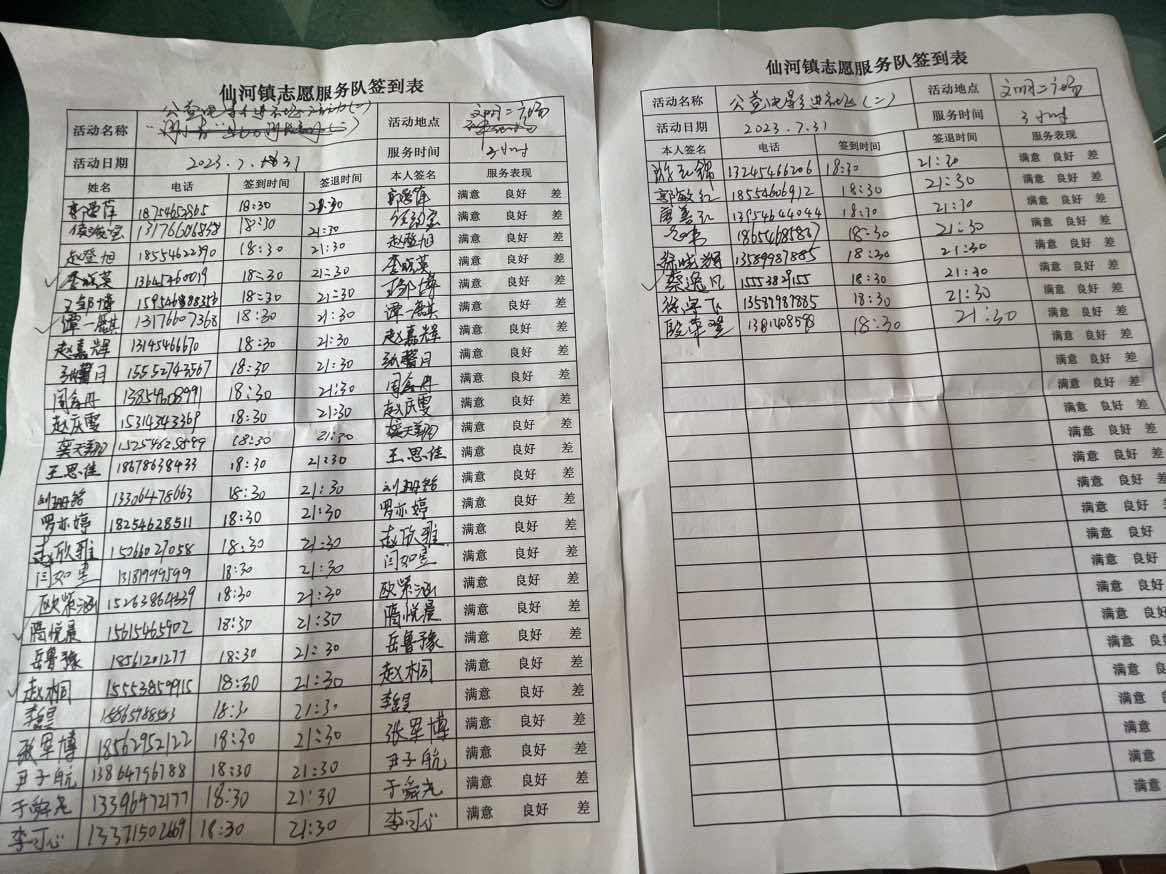 仙河镇志愿服务队签到表
活动名称 公益电影进社区(二) 活动地点 文明广场
活动日期 2023.7.31 服务时间 3小时
姓名 电话 签到时间 签退时间 本人签名 服务表现
18:30 21:30 满意 良好 差
13176606868 18:30 21:30 满意 良好 差
赵登旭 18554622390 18:30 21:30 赵登旭 满意 良好 差
李晓英 13645460019 18:30 21:30 李晓英 满意 良好 差
18:30 21:30 满意 良好 差
谭一麒 13176607368 18:30 21:30 谭一麒 满意 良好 差
赵嘉辉 13145466670 18:30 21:30 赵嘉辉 满意 良好 差
张馨月 15552743567 18:30 21:30 张馨月 满意 良好 差
周鑫丹 18:30 21:30 周鑫丹 满意 良好 差
赵庆雯 15314343369 18:30 21:30 赵庆雯 满意 良好 差
18:30 21:30 满意 良好 差
王思佳 18678638433 18:30 21:30 王思佳 满意 良好 差
18:30 21:30 满意 良好 差
罗亦婷 18254628511 18:30 21:30 罗亦婷 满意 良好 差
赵欣雅 15066027058 18:30 21:30 赵欣雅 满意 良好 差
13181999599 18:30 21:30 满意 良好 差
欧紫涵 15263864339 18:30 21:30 欧紫涵 满意 良好 差
隋悦晨 15615465902 18:30 21:30 隋悦晨 满意 良好 差
岳鲁豫 18561201277 18:30 21:30 岳鲁豫 满意 良好 差
赵桐 15553859915 18:30 21:30 赵桐 满意 良好 差
18:30 21:30 满意 良好 差
张军博 18562952122 18:30 21:30 张军博 满意 良好 差
尹子航 13864796788 18:30 21:30 尹子航 满意 良好 差
于舜尧 13396472177 18:30 21:30 于舜尧 满意 良好 差
李可心 13371502669 18:30 21:30 李可心 满意 良好 差
仙河镇志愿服务队签到表
活动名称 公益电影进社区(二) 活动地点 文明广场
活动日期 2023.7.31 服务时间 3小时
本人签名 电话 签到时间 签退时间 服务表现
13245466206 18:30 21:30 满意 良好 差
郭敏红 18554606912 18:30 21:30 满意 良好 差
13954644044 18:30 21:30 满意 良好 差
18:30 21:30 满意 良好 差
13589987885 18:30 21:30 满意 良好 差
蔡逸凡 18:30 21:30 满意 良好 差
18:30 21:30 满意 良好 差
18:30 21:30 满意 良好 差
满意 良好 差
满意 良好 差
满意 良好 差
满意 良好 差
满意 良好 差
满意 良好 差
满意 良好 差
满意 良好 差
满意 良好 差
满意 良好 差
满意 良好
满意 良好
满意 良好
满意 良好
满意 良好
满意
满意
满意